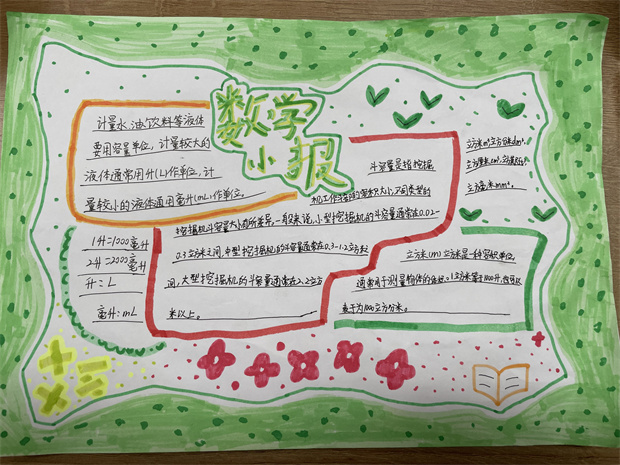 数学
小报
计量水、油、饮料等液体
要用容量单位，计量较大的
液体通常用升(L)作单位，计
量较小的液体通用毫升(mL)作单位，
1升=1000毫升
2升=2000毫升
升=L
毫升=mL
斗容量是指挖掘
机工作
挖掘机斗容量大小有所差异，一般来说，小型挖掘机的斗容量通常在0.02-
0.3立方米之间，中型挖掘机的斗容量通常在0.3-1.2立方米
间，大型挖掘机的斗容量通常在2.2立方
米以上。
立方米m³立方分米dm³
立方厘米cm³
立方毫米mm³.
立方米(m³)立方米是一种容积单位，
通常用于测量物体的体积。1立方米等于1000升，也可以
表示为1000立方分米。